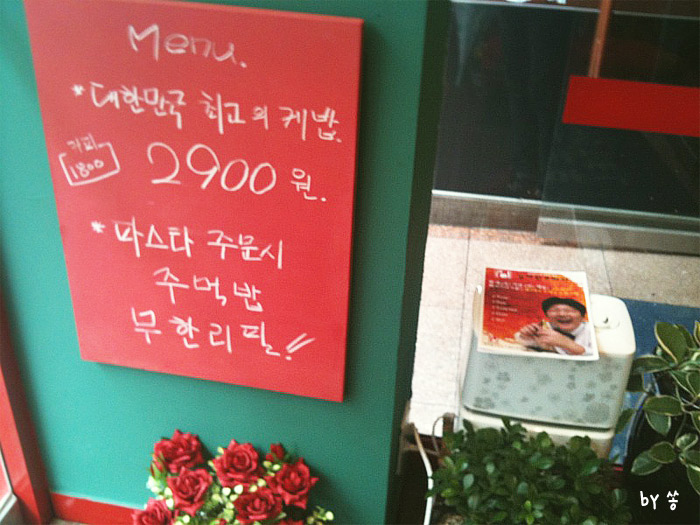 Menu.
*대한민국 최고의 케밥.
커피
1800
2900 원.
* 파스타 주문시
주먹밥
무한리필!!
by 쏭